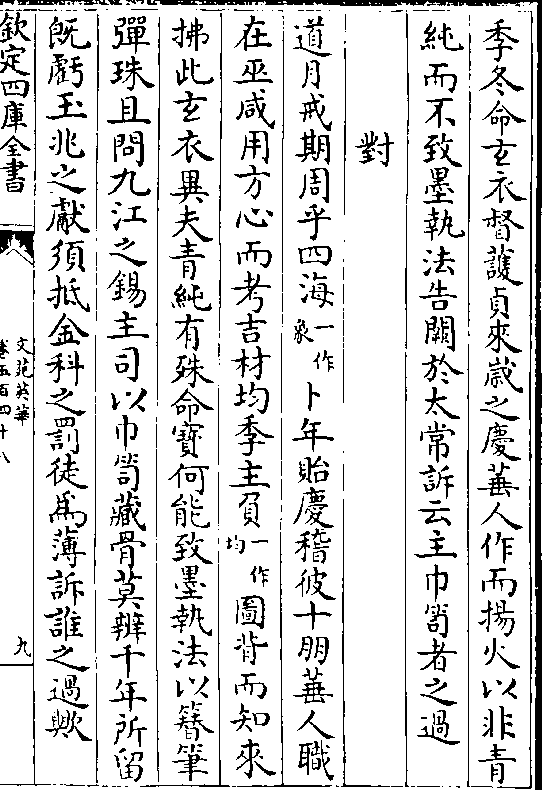 季冬命玄衣督護貞來歲之慶菙人作而揚火以非青
純而不致墨執法告闕於太常訴云主巾笥者之過
對
道月戒期周乎四海一作象卜年貽慶稽彼十朋菙人職
在巫咸用方心而考吉材均季主負一作均圖背而知來
拂此玄衣異夫青純有殊命寶何能致墨執法以簪筆
彈珠且問九江之錫主司以巾笥藏骨莫辨千年所留
旣虧玉兆之獻須抵金科之罰徒為薄訴誰之過歟
欽定四庫全書
文苑英華
卷五百四十八
九